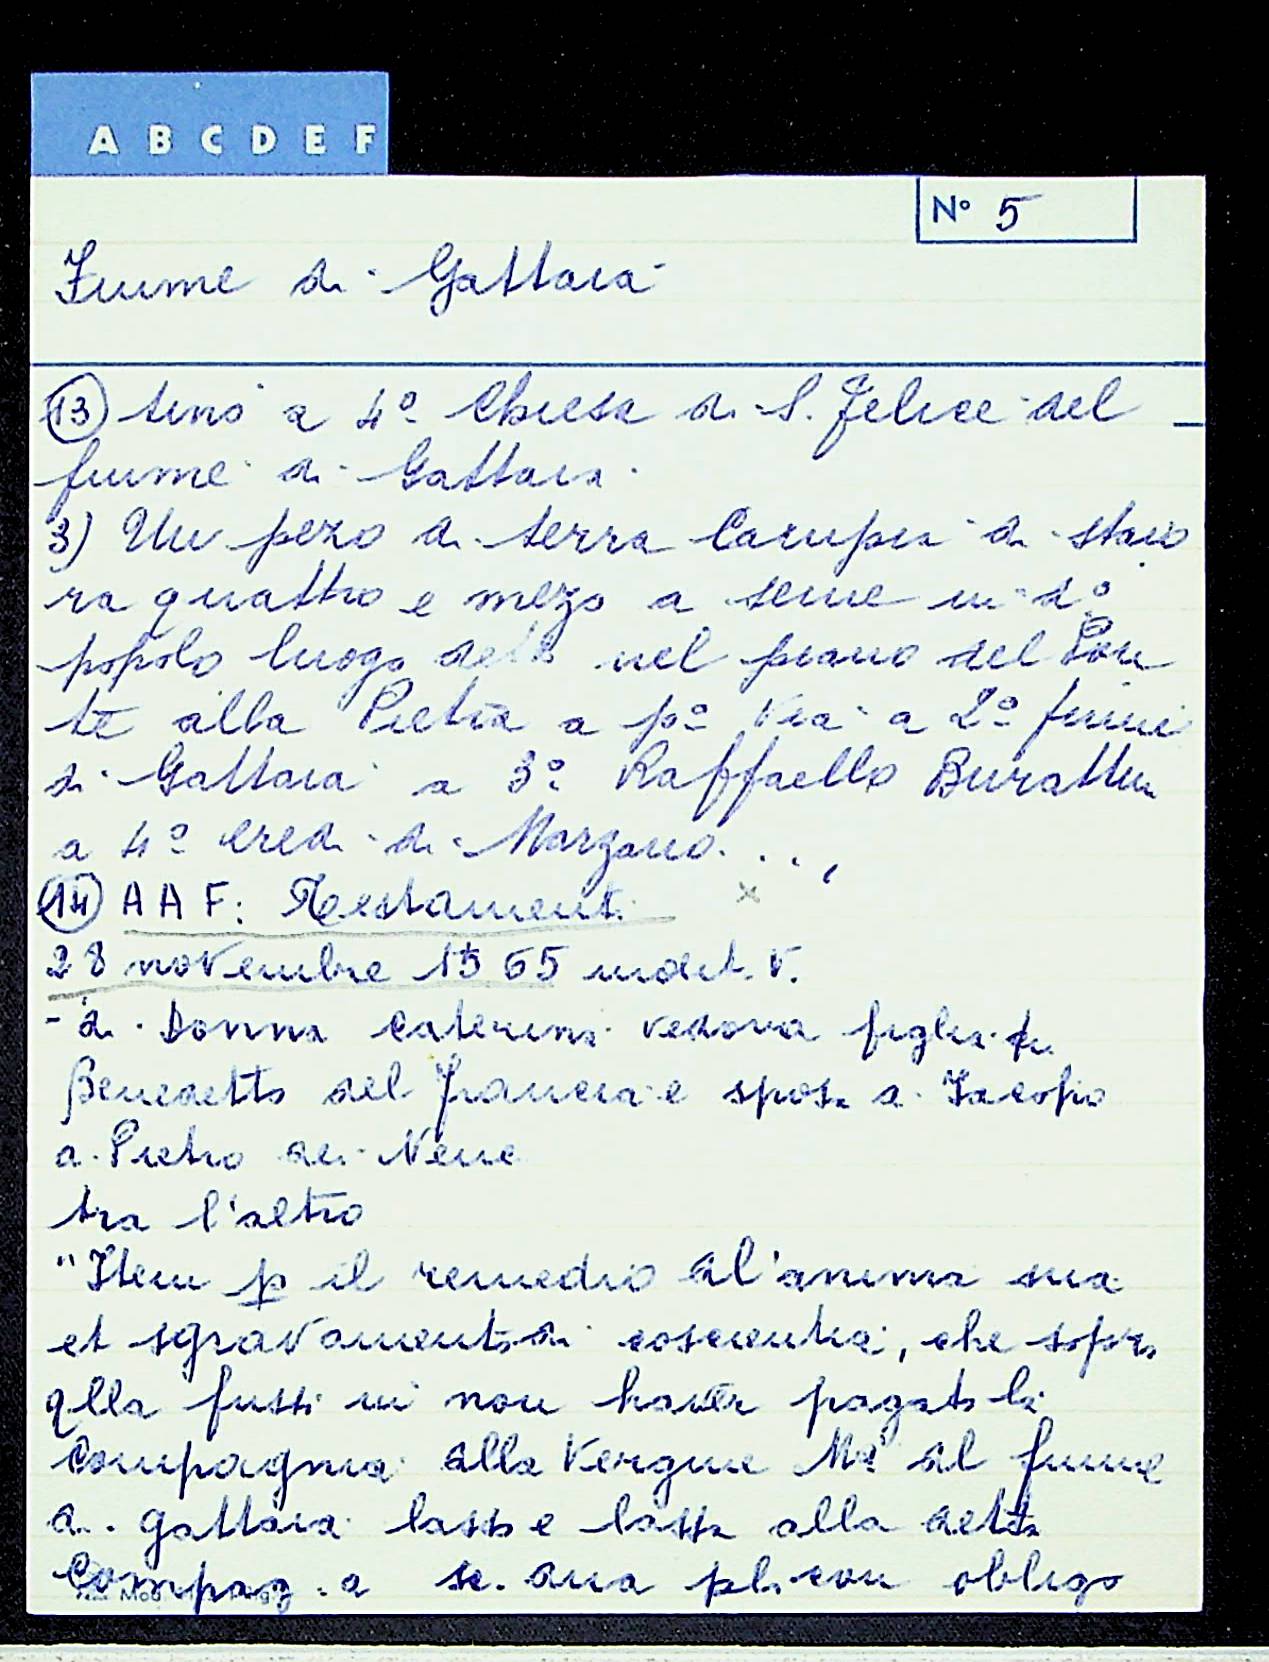 A B C D E F
N° 5
Fiume di Gattaia
(13) tino a 4º Chiesa di S. Felice del
fiume di Gattaia.
3) Un pezo di terra Campia di staio
ra quattro e mezo a seme in dº
popolo luogo detto nel piano del Pon
te alla Pietra a pº Via a 2º fiume
di Gattaia a 3º Raffaello Burattin
a 4º eredi di Marzano...,
(14) AAF: Testamenti
28 novembre 1565 indict. V.
- di Donna Caterina vedova figlia fu
Benedetto del Francia e sposa a Jacopo
di Pietro del Nene
tra l'altro
"Item p il remedio dl'anima sua
et sgravamento di coscientia, che sopra
qlla fussi in non haver pagato la
Compagnia dlla Vergine Mª dl fiume
di gattaia lasso e lassa alla detta
Compag.a sc. dua pl. con obligo